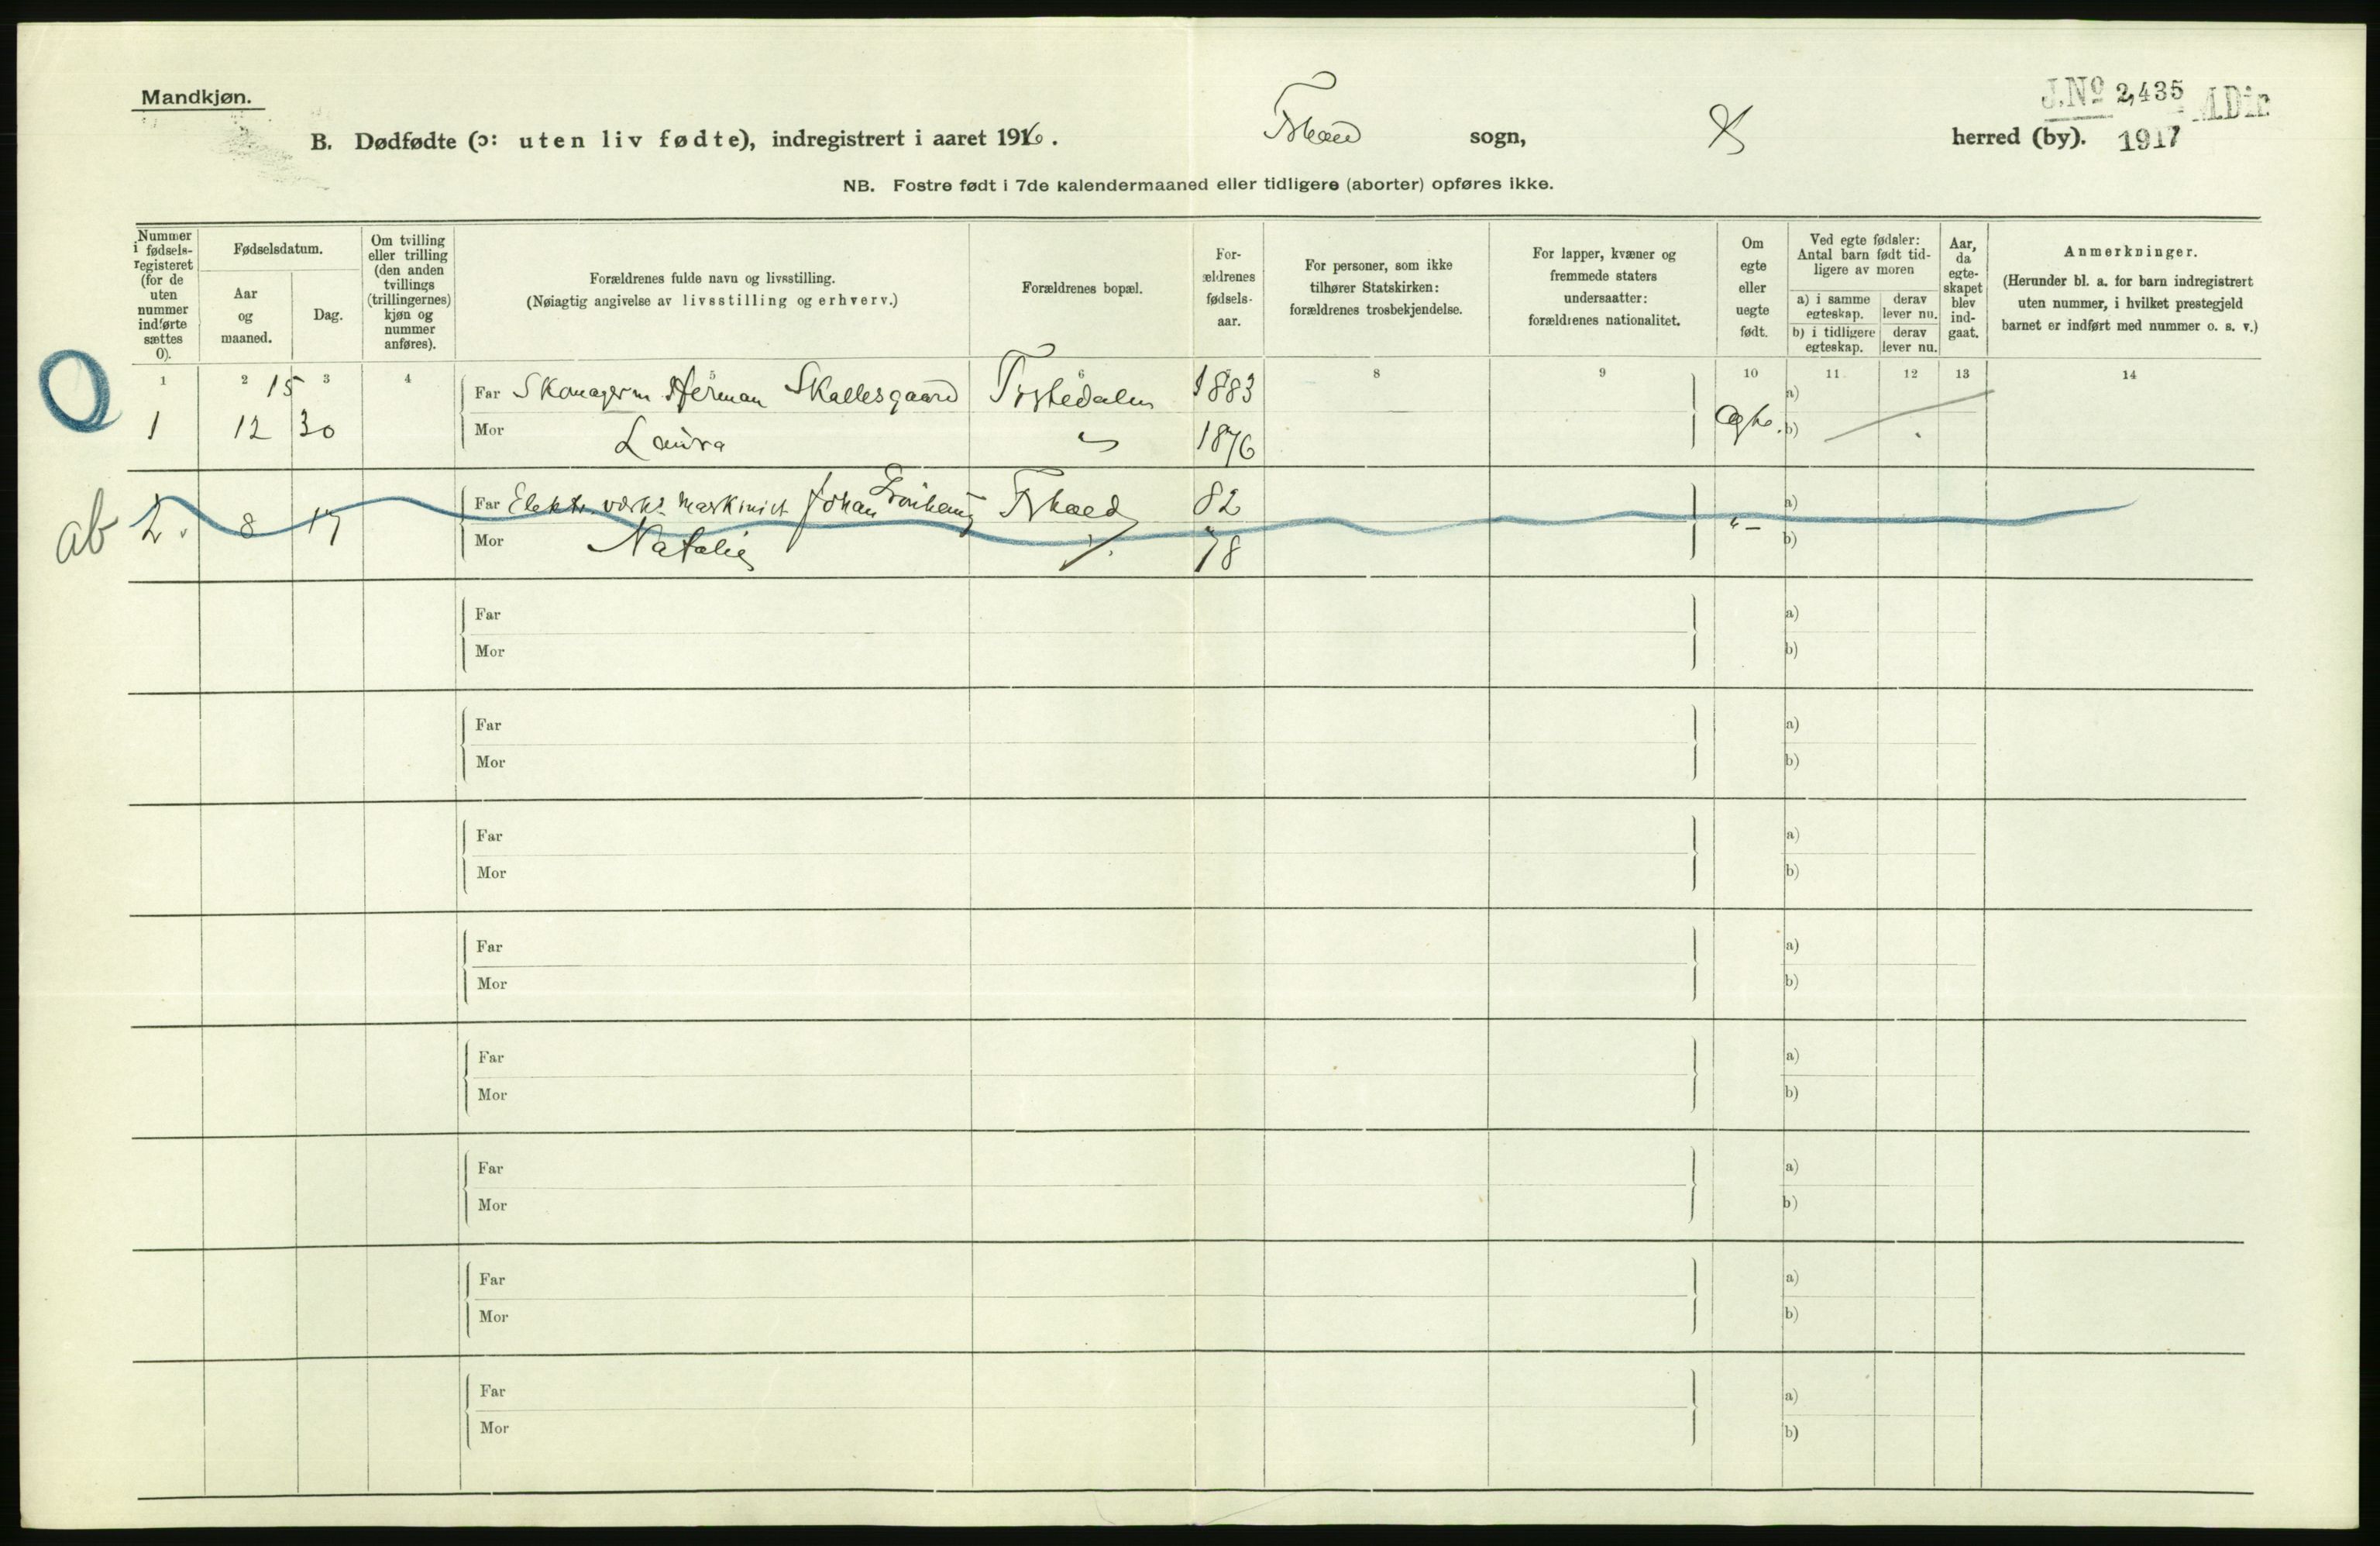 Mandkjøn.
J.No 2,435 M.Dir
1917
B. Dødfødte (ɔ: uten liv fødte), indregistrert i aaret 1916. sogn, herred (by).
NB. Fostre født i 7de kalendermaaned eller tidligere (aborter) opføres ikke.
Nummer i fødsels-registeret (for de uten nummer indførte sættes 0).
Fødselsdatum.
Aar og maaned.
Dag.
Om tvilling eller trilling (den anden tvillings (trillingernes) kjøn og nummer anføres).
Forældrenes fulde navn og livsstilling.
(Nøiagtig angivelse av livsstilling og erhverv.)
Forældrenes bopæl.
For-ældrenes fødsels-aar.
For personer, som ikke tilhører Statskirken: forældrenes trosbekjendelse.
For lapper, kvæner og fremmede staters undersaatter: forældrenes nationalitet.
Om egte eller uegte født.
Ved egte fødsler: Antal barn født tid-ligere av moren
a) i samme egteskap.
derav lever nu.
b) i tidligere egteskap.
derav lever nu.
Aar, da egte-skapet blev ind-gaat.
Anmerkninger.
(Herunder bl. a. for barn indregistrert uten nummer, i hvilket prestegjeld barnet er indført med nummer o. s. v.)
1 2 3 4 5 6 8 9 10 11 12 13 14
15
Far Skomagerm Herman Skallesgaard 1883 a)
1 12 30 Mor Laura " 1876 Egte. b)
Far Elektr. værks maskinist Johan 82 a)
ab 2. 8 17 Mor Natalie 78 " – b)
Far a)
Mor b)
Far a)
Mor b)
Far a)
Mor b)
Far a)
Mor b)
Far a)
Mor b)
Far a)
Mor b)
Far a)
Mor b)
Far a)
Mor b)